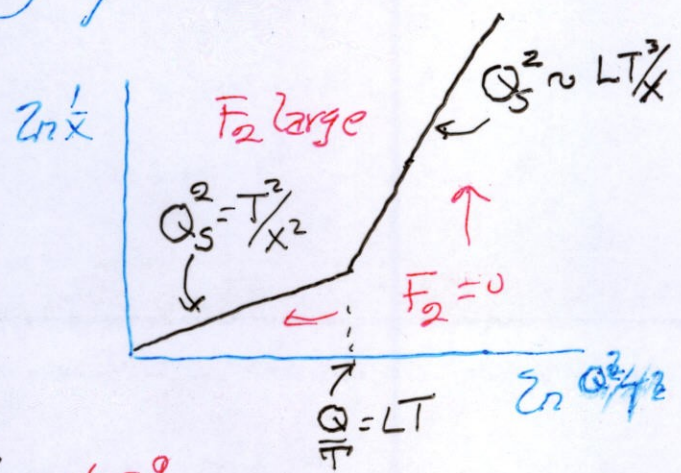 ln 1/x
F₂ large
Qₛ² ~ LT³/x
Qₛ² = T²/x²
F₂ = 0
Q/T = LT
ln